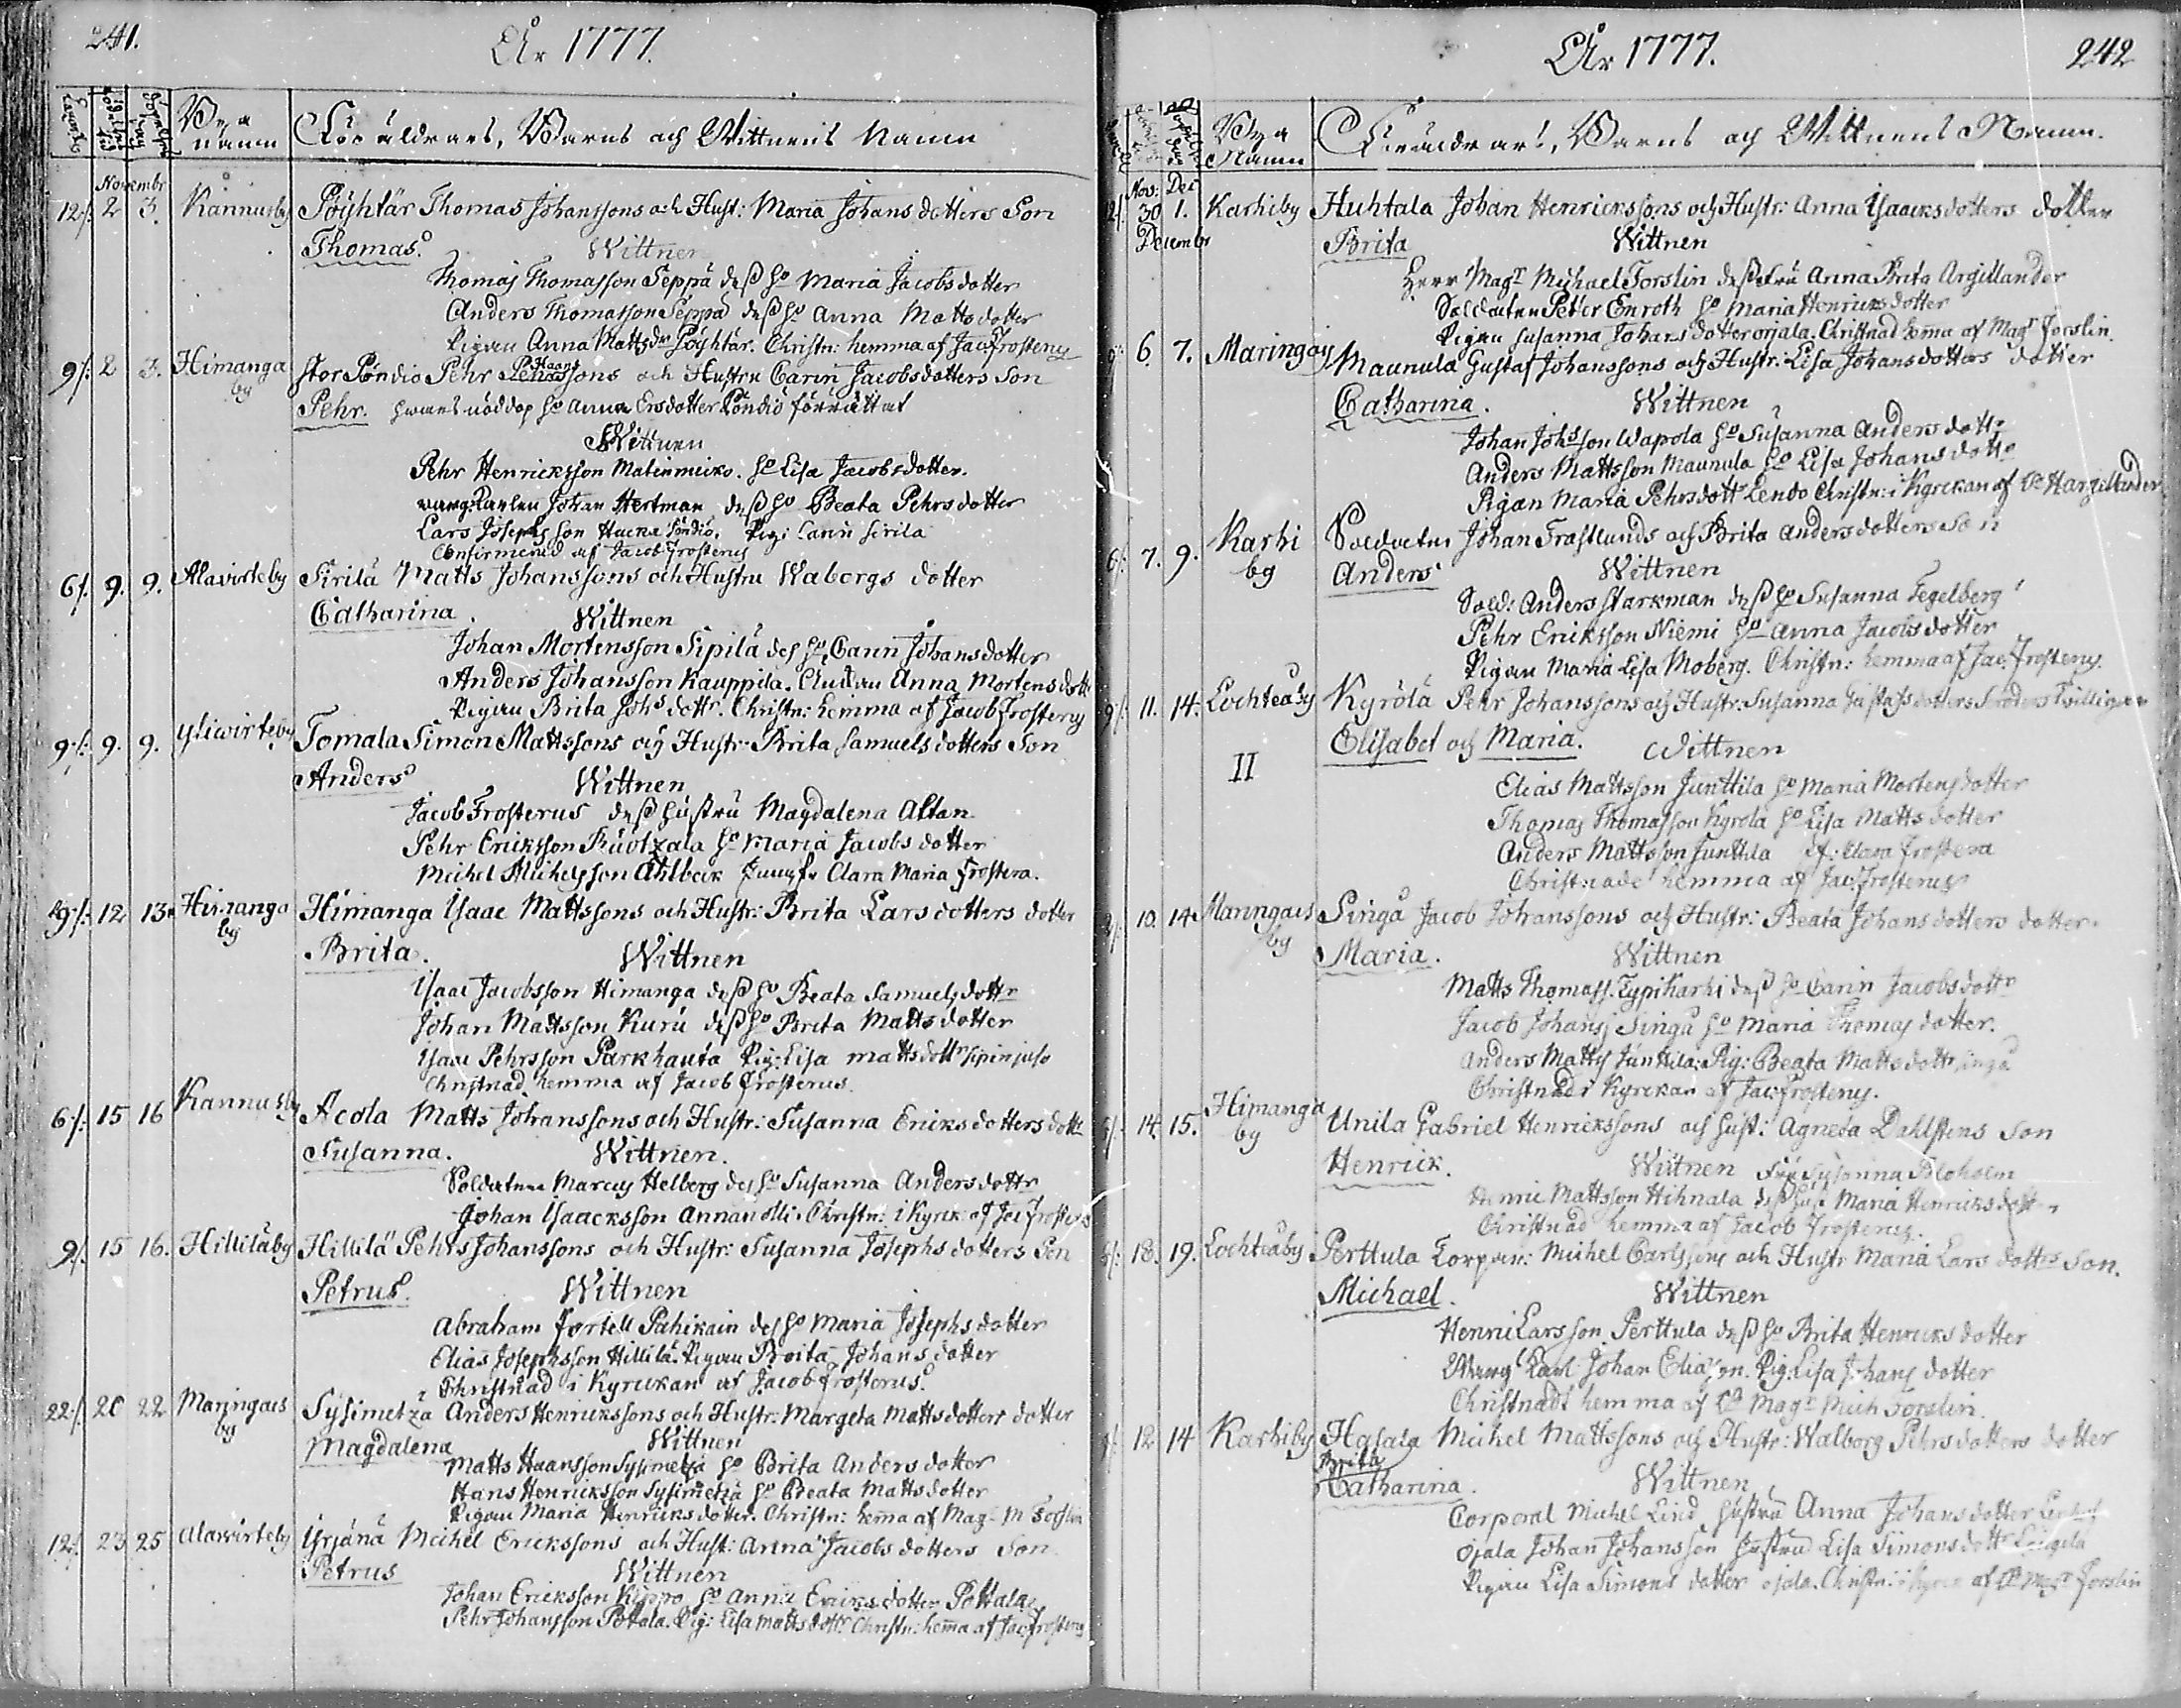 241.
År 1777.
Bya namn
Föräldrars, Barns och Wittnens Namn
Novembr
12/. 2 3. Kannusby Pöyhtär Thomas Johanssons och Hust: Maria Johansdotters Son
Thomas. Wittnen
Thomas Thomasson Seppä dess ho Maria Jacobsdotter
Anders Thomasson Seppä dess ho Anna Mattsdotter
Pigan Anna Mattsdr Pöyhtär. Christn: hemma af Jac Frosterus
9/. 2 3. Himanga by Stor Pöndiö Pehr Pehrssons och Hustru Carin Jacobsdotters Son
Pehr. nöddop ho Anna Ersdotter Pöndiö förrättat
Wittnen
Pehr Henricksson Matinmiko. ho Lisa Jacobsdotter.
Johan Hertman dess ho Beata Pehrsdotter
Lars Josephsson Pöndiö. Pig: Carin Sirila
Confirmerad af Jacob Frosterus
6/. 9. 9. Alavirteby Sirilä Matts Johanssons och Hustru Waborgs dotter
Catharina. Wittnen
Johan Mortensson Sipilä des ho Carin Johansdotter
Anders Johansson Kauppila. Anna Mortensdott
Pigan Brita Johs dottr. Christn: hemma af Jacob Frosterus
9/. 9. 9. Yliwirteby Tomala Simon Mattssons och Hustr. Brita Samuelsdotters Son
Anders Wittnen
Jacob Frosterus dess hustru Magdalena Altan
Pehr Ericksson ho Maria Jacobsdotter
Michel Michelsson Ahlbeck Jungfr Clara Maria Frostera.
19/. 12 13. Himanga by Himanga Isaac Mattssons och Hustr: Brita Larsdotters dotter
Brita. Wittnen
Isaac Jacobsson Himanga dess ho Beata Samuelsdottr
Johan Mattsson Kuru dess ho Brita Mattsdotter
Isaac Pehrsson Parkhauta Pig: Lisa mattsdottr
Christnad hemma af Jacob Frosterus
6/. 15 16 Kannusby Acola Matts Johanssons och Hustr: Susanna Ericksdotters dottr
Susanna. Wittnen.
Soldaten Marcus Helberg des ho Susanna Andersdottr
Johan Isaacksson Annanolli. Christn: i Kyrck af Jac Frosterus
9/. 15 16. Hillilä by Hillilä Pehrs Johanssons och Hustr: Susanna Josephsdotters Son
Petrus. Wittnen
Abraham Fortell Pahikain des ho Maria Josephsdotter
Elias Josephsson Hillilä. Pigan Brita Johansdotter
Christnad i Kyrckan af Jacob Frosterus.
22/. 20 22 Maringais by Sysimetzä Anders Henrickssons och Hustr: Margeta Mattsdotters dotter
Magdalena Wittnen
Matts Haansson Sysimetzä ho Brita Andersdotter
Hans Henricksson Sysimetzä ho Beata Mattsdotter
Pigan Maria Henricksdotter. Christn: hema af Magr M Forslin
12/. 23 25 Alawirteby Yrjänä Michel Erickssons och Hust: Anna Jacobsdotters Son
Petrus Wittnen
Johan Ericksson Keppo ho Anna Ericksdotter Pottala
Pehr Johansson Pottala. Pig: Lisa Mattsdottr Christn: hema af Jac Frosterus
År 1777.
242
Bya Namn
Föräldrars, Barns och Wittnens Namn.
Nov: Dec
12/. 30 1. Karhiby Huhtala Johan Henrickssons och Hustr: Anna Isaacksdotters dotter
Decembr
Brita Wittnen
Herr Magr Michael Forslin dess fru Anna Brita Argillander
Soldaten Petter Enroth ho Maria Henricksdotter
Pigan Susanna Johansdotter Orjala. Christnad hema af Magr Forslin.
6 7. Maringais Maunula Gustaf Johanssons och Hustr: Lisa Johansdotters dotter
Catharina. Wittnen
Johan Johsson Wapola ho Susanna Andersdottr
Anders Mattsson Maunula ho Lisa Johansdottr
Pigan Maria Pehrsdottr Lendo Christn: i Kyrckan af Argillander
7. 9. Karhi by Soldaten Johan Frastlunds och Brita Andersdotters Son
Anders Wittnen
Sold: Anders Starkman dess ho Susanna Tegelberg
Pehr Ericksson Niemi ho Anna Jacobsdotter
Pigan Maria Lisa Moberg. Christn: hemma af Jac. Frosterus
9/. 11. 14. Lochteåby Kyrölä Pehr Johanssons och Hustr: Susanna Gustafsdotters
Elisabet och Maria. Wittnen
II
Elias Mattsson Junttila ho Maria Mortensdotter
Thomas Thomasson Kyrola ho Lisa Mattsdotter
Anders Mattsson Junttila Jf: Clara Frostera
Christnade hemma af Jac Frosterus
10. 14 Maringais by Singå Jacob Johanssons och Hustr: Beata Johansdotters dotter.
Maria. Wittnen
Matts Thomass. Typikarhi dess ho Carin Jacobsdottr
Jacob Johans Singå ho Maria Thomasdotter.
Anders Matts Junttila: Pig: Beata Mattsdottr Singå
Christnad i Kyrckan af Jac Frosterus.
14. 15. Himanga by Unila Gabriel Henrickssons och Hust: Agneta Dahlstens Son
Henrick. Wittnen Susanna
Henric Mattsson Hihnala dess hust Maria Henricksdotter
Christnad hemma af Jacob Frosterus.
18. 19. Lochteåby Perttula Michel Carlssons och Hustr Maria Larsdottrs Son.
Michael. Wittnen
Henric Larsson Perttula dess ho Brita Henricksdotter
Johan Eliasson. Pig: Lisa Johansdotter
Christnadt hemma af Magr Mich Forslin.
12 14 Karhiby Hasala Michel Mattssons och Hustr: Walborg Pehrsdotters dotter
Brita
Catharina. Wittnen
Corporal Michel Lind hustru Anna Johansdotter
Ojala Johan Johansson hustru Lisa Simonsdottr
Pigan Lisa Simonsdotter Ojala. Christn: i Kyrck af Magr Forslin